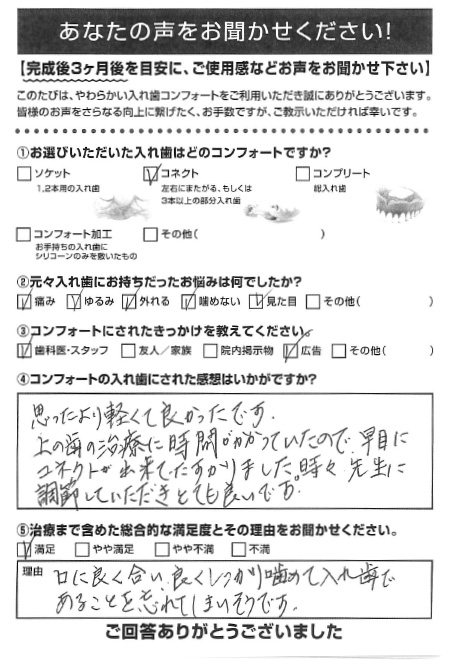 あなたの声をお聞かせください！
【完成後3ヶ月後を目安に、ご使用感などお声をお聞かせ下さい】
このたびは、やわらかい入れ歯コンフォートをご利用いただき誠にありがとうございます。
皆様のお声をさらなる向上に繋げたく、お手数ですが、ご教示いただければ幸いです。
①お選びいただいた入れ歯はどのコンフォートですか？
□ソケット
1,2本用の入れ歯
☑コネクト
左右にまたがる、もしくは
3本以上の部分入れ歯
□コンプリート
総入れ歯
□コンフォート加工
お手持ちの入れ歯に
シリコーンのみを敷いたもの
□その他（　　　）
②元々入れ歯にお持ちだったお悩みは何でしたか？
☑痛み ☑ゆるみ ☑外れる ☑噛めない ☑見た目 □その他（　　　）
③コンフォートにされたきっかけを教えてください。
☑歯科医・スタッフ □友人／家族 □院内掲示物 ☑広告 □その他（　　　）
④コンフォートの入れ歯にされた感想はいかがですか？
思ったより軽くて良かったです。
上の歯の治療に時間がかかっていたので、早目に
コネクトが出来てたすかりました。時々、先生に
調節していただきとても良いです。
⑤治療まで含めた総合的な満足度とその理由をお聞かせください。
☑満足 □やや満足 □やや不満 □不満
理由
口に良く合い、良くしっかり噛めて入れ歯で
あることを忘れてしまいそうです。
ご回答ありがとうございました